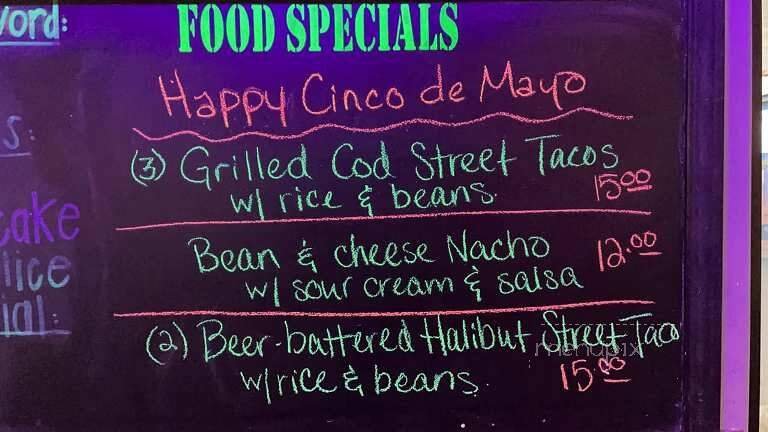 word:
FOOD SPECIALS
Happy Cinco de Mayo
s:
(3) Grilled Cod Street Tacos
w/ rice & beans. 15.00
cake
Bean & cheese Nacho 12.00
lice
w/ sour cream & salsa
ial:
(2) Beer-battered Halibut Street Taco
menupix
w/rice & beans. 15.00